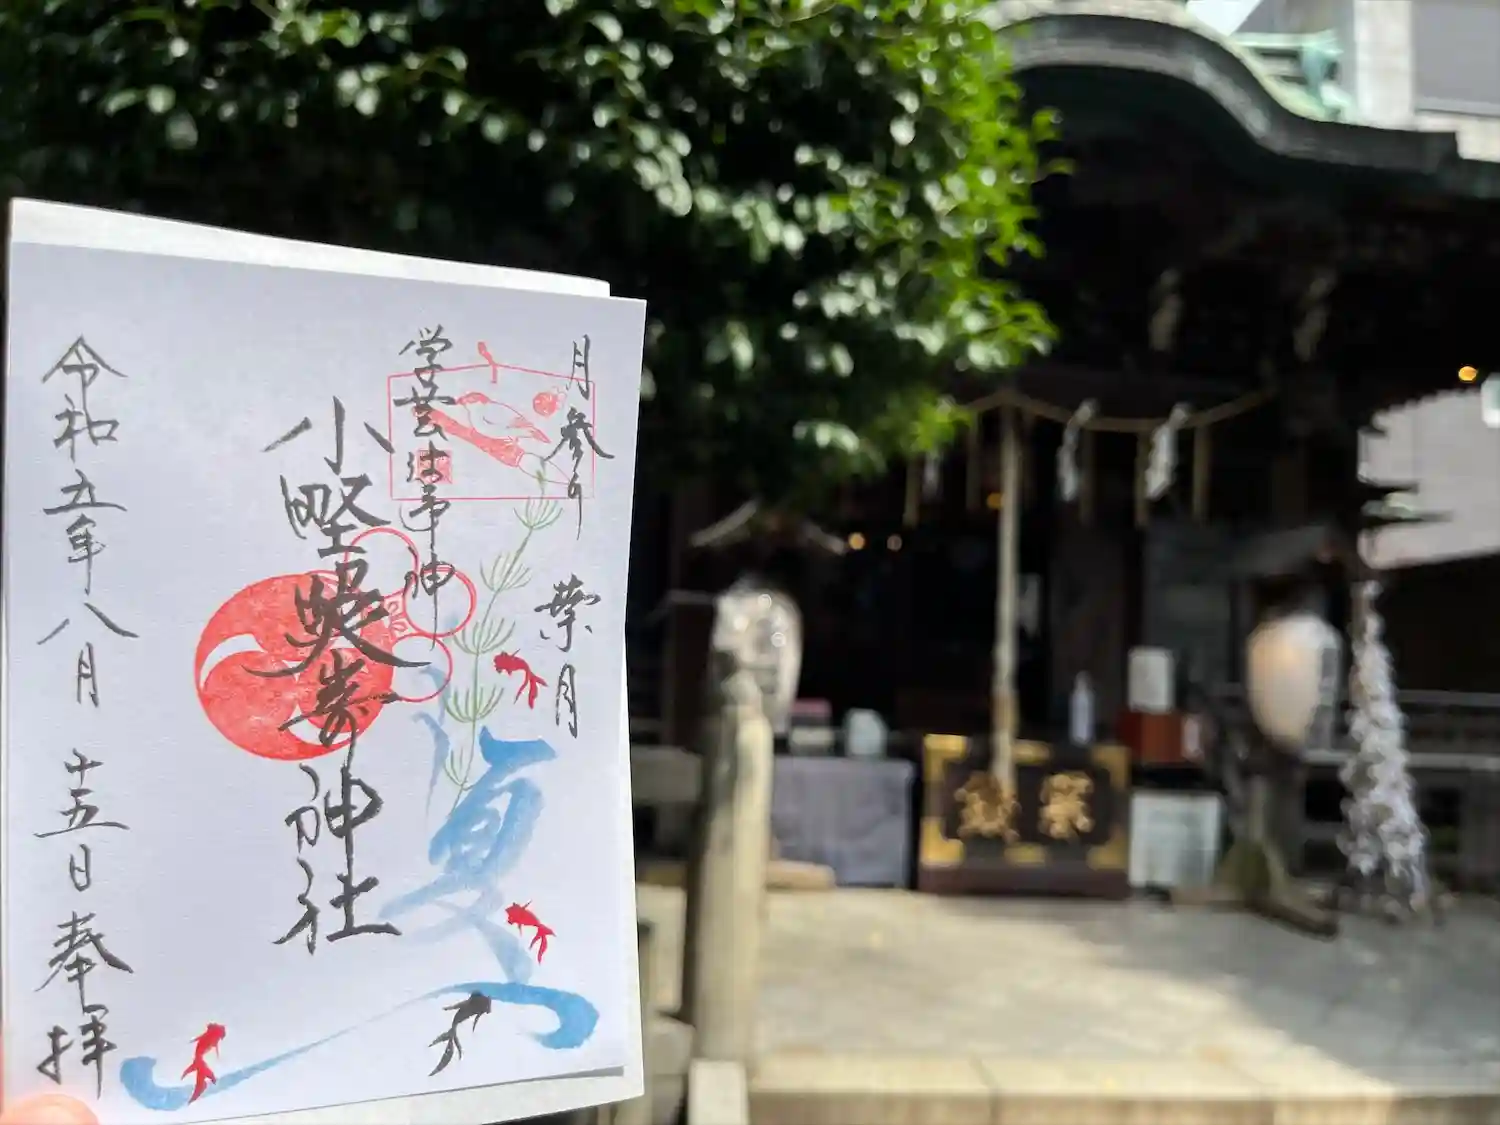 月参り 葉月
学芸 神
夏
小野照崎神社
令和五年八月 十五日 奉拝